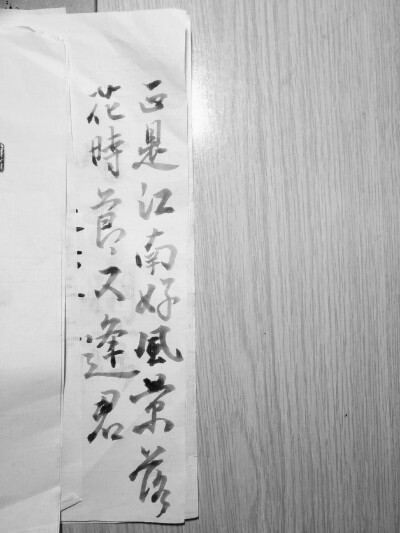 正是江南好風景落
花時節又逢君